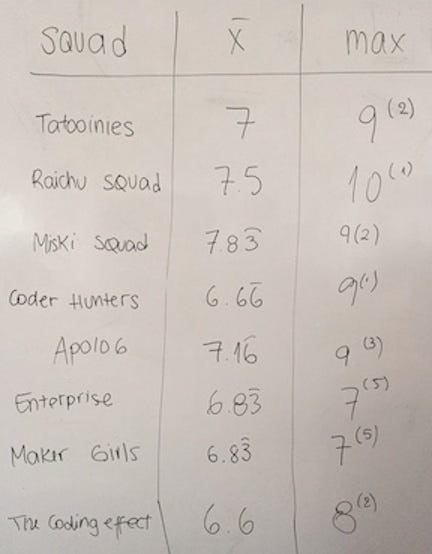 Squad x̄ max
Tatooinies 7 9(2)
Raichu squad 7.5 10(1)
Miski Squad 7.83̅ 9(2)
Coder Hunters 6.66̅ 9(1)
Apolo 6 7.16̅ 9(3)
Enterprise 6.83̅ 7(5)
Maker Girls 6.83̅ 7(5)
The Coding effect 6.6 8(2)